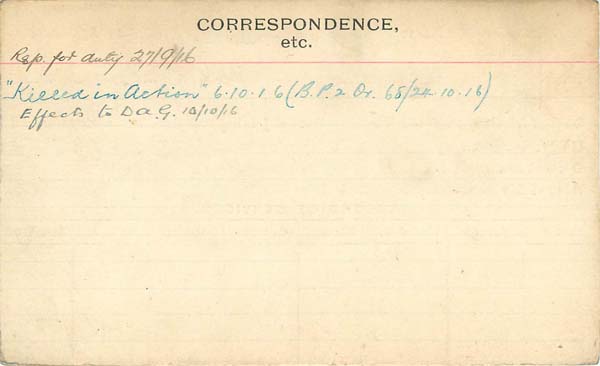 CORRESPONDENCE,
etc.
Rep. for duty 27/9/16
"Killed in Action" 6.10.16 (B.P.2 Or. 68/24.10.16)
Effects to D A G. 10/10/16